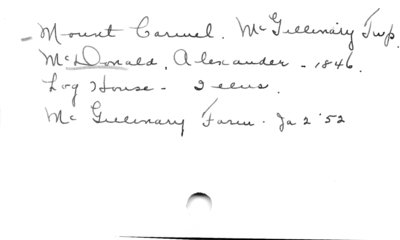 - Mount Carmel. McGillivray Twp.
McDonald, Alexander - 1846.
Log House -
Mc Gillivray Farm. Ja 2 '52